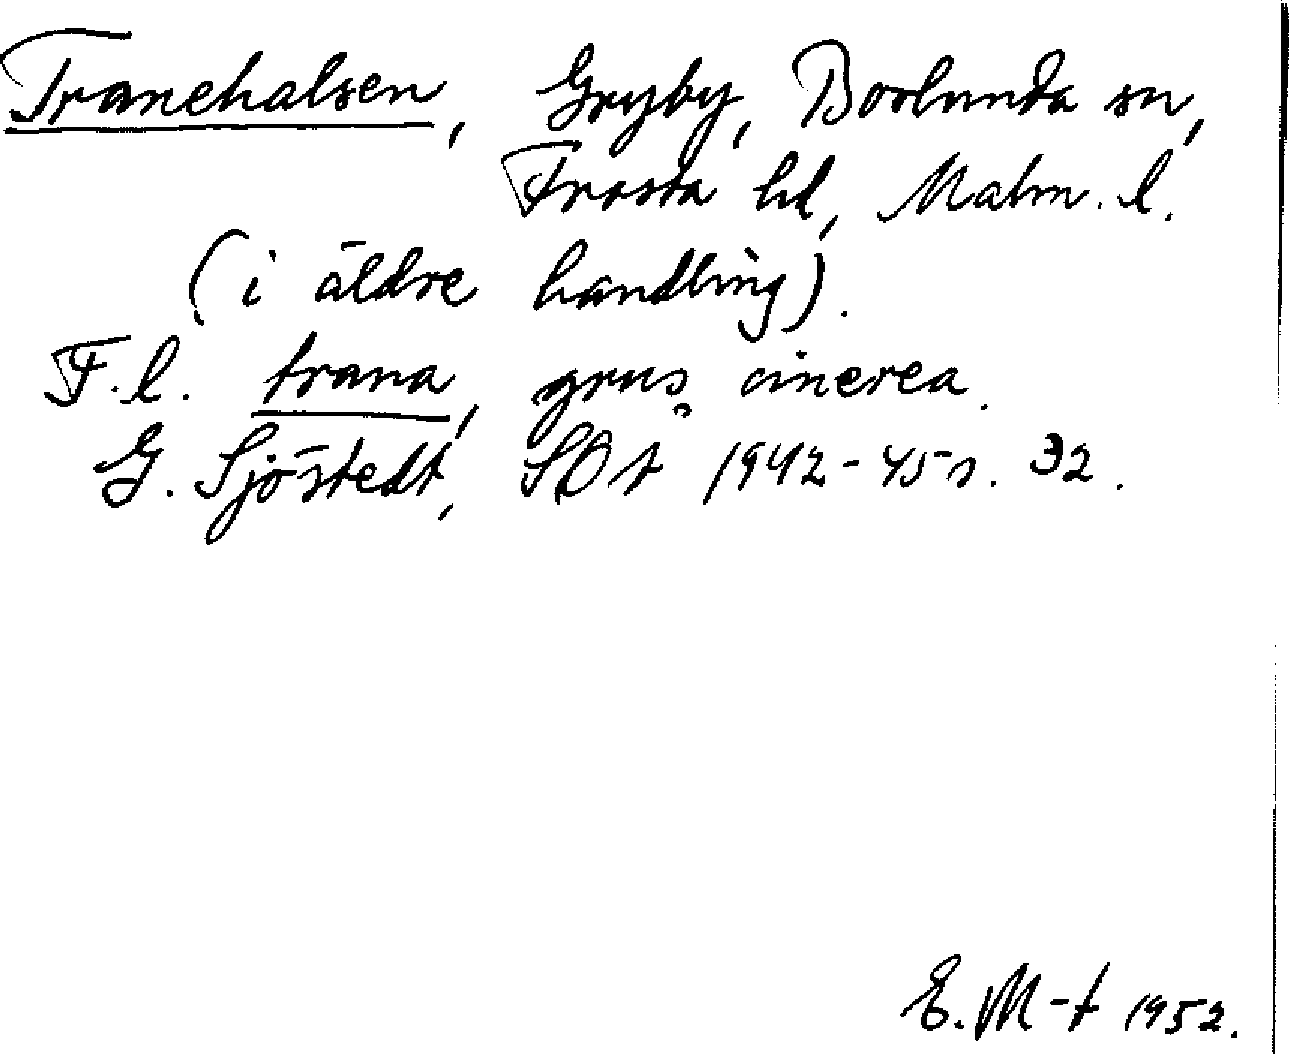 Tranehalsen, Gryby, Boslunda sn,
Frosta hd, Malm. l.
(i äldre handling).
F.l. trana, grus cinerea.
G. Sjöstedt, SOÅ 1942-45 s. 32.
E. M-t 1952.